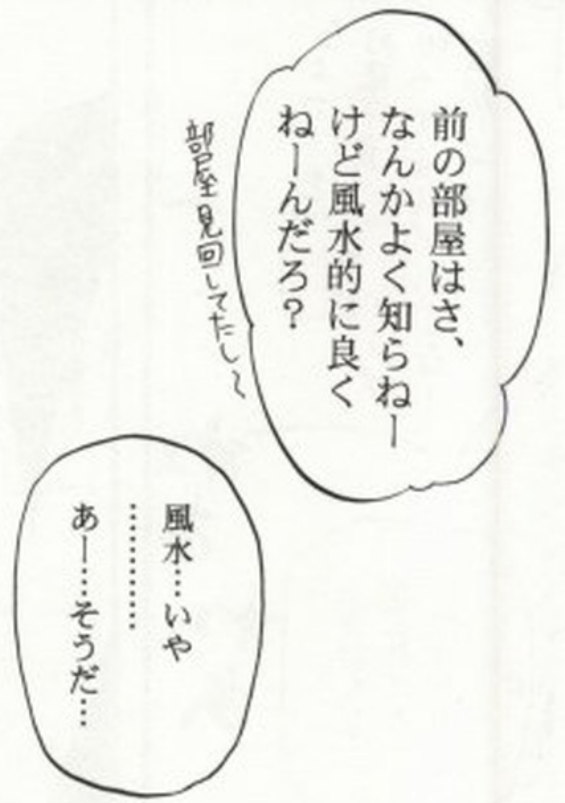 前の部屋はさ、
なんかよく知らねー
けど風水的に良く
ねーんだろ？
部屋見回してたし〜
風水…いや
…………
あー…そうだ…